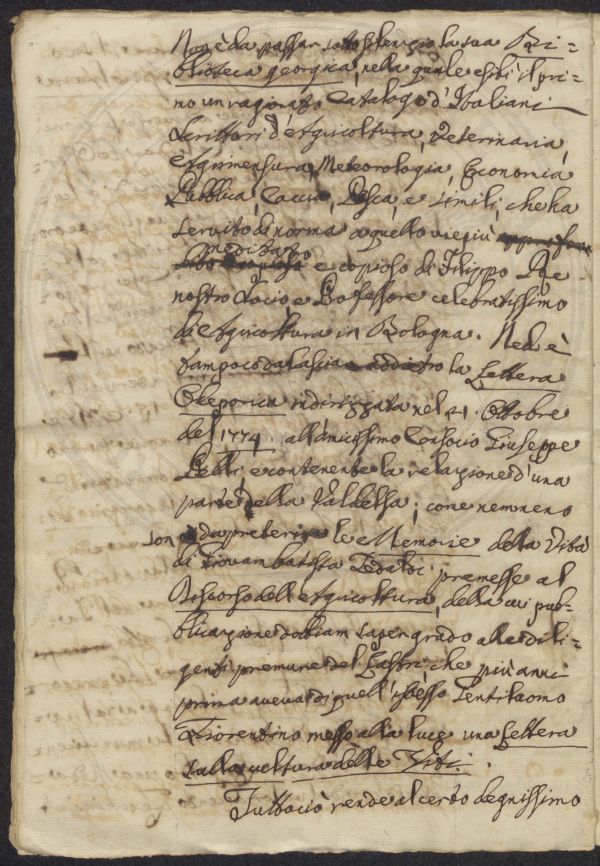 Non è da passar sotto silenzio la sua Bi=
blioteca georgica, nella quale esibì il pri=
mo un ragionato Catalogo d'Italiani
Scrittori d'Agricoltura, Veterinaria,
Agrimensura, Meteorologia, Economia
Pubblica, Caccia, Pesca, e simili, che ha
servito di norma a quello viepiù
meditato
e copioso di Filippo Re
nostro Socio e Professore celebratissimo
di Agricoltura in Bologna. Ned è
tampoco da lasciar addietro la Lettera
Odeporica indirizzata nel Ottobre
del 1774. all'amicissimo Consocio Giuseppe
Pelli, e contenente la relazione d'una
parte della Valdelsa; come nemmeno
son da preterire le Memorie della Vita
di Giovambatista Tedaldi premesse al
Discorso dell'Agricoltura, della cui pub=
blicazione dobbiam saper grado alle dili=
genti premure del Lastri che più anni
prima aveva di quell'istesso Gentiluomo
Fiorentino messo alla luce una Lettera
sulla cultura delle Viti.
Tuttociò rende al certo degnissimo